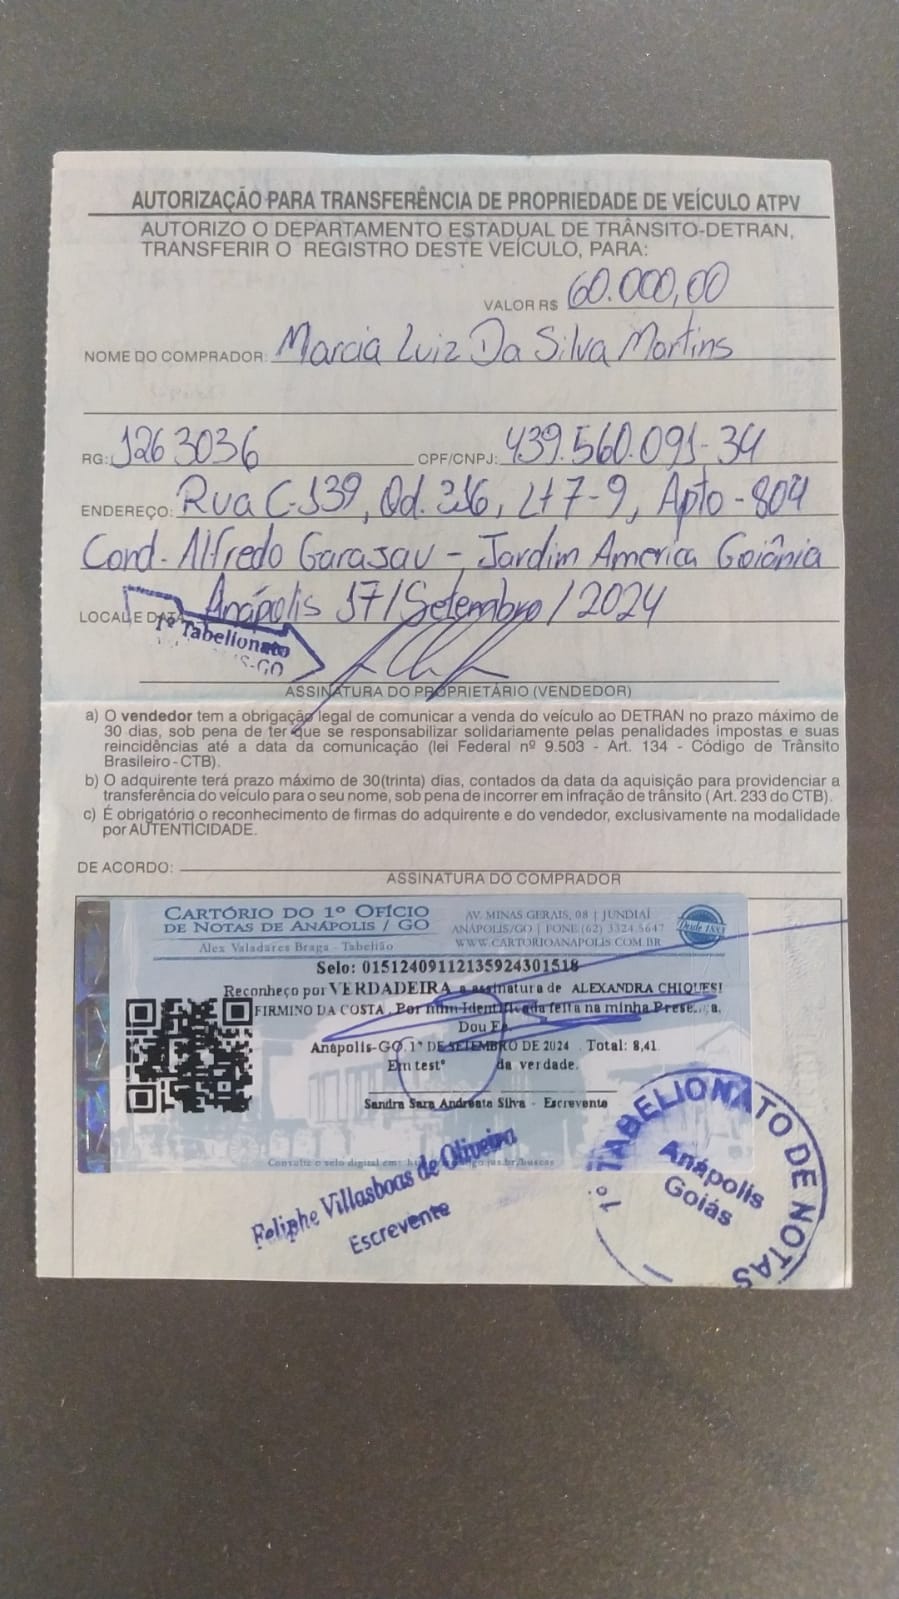 AUTORIZAÇÃO PARA TRANSFERÊNCIA DE PROPRIEDADE DE VEÍCULO ATPV
AUTORIZO O DEPARTAMENTO ESTADUAL DE TRÂNSITO-DETRAN,
TRANSFERIR O REGISTRO DESTE VEÍCULO, PARA:
VALOR R$ 60.000,00
NOME DO COMPRADOR: Marcia Luiz Da Silva Martins
RG: 1263036 CPF/CNPJ: 439.560.091-34
ENDEREÇO: Rua C-139, Qd. 316, Lt 7-9, Apto - 804
Cond. Alfredo - Jardim America Goiânia
LOCAL E DATA Anápolis 17/Setembro/2024
1º Tabelionato
IS-GO
ASSINATURA DO PROPRIETÁRIO (VENDEDOR)
a) O vendedor tem a obrigação legal de comunicar a venda do veículo ao DETRAN no prazo máximo de
30 dias, sob pena de ter que se responsabilizar solidariamente pelas penalidades impostas e suas
reincidências até a data da comunicação (lei Federal nº 9.503 - Art. 134 - Código de Trânsito
Brasileiro - CTB).
b) O adquirente terá prazo máximo de 30(trinta) dias, contados da data da aquisição para providenciar a
transferência do veículo para o seu nome, sob pena de incorrer em infração de trânsito (Art. 233 do CTB).
c) É obrigatório o reconhecimento de firmas do adquirente e do vendedor, exclusivamente na modalidade
por AUTENTICIDADE.
DE ACORDO:
ASSINATURA DO COMPRADOR
CARTÓRIO DO 1º OFÍCIO
DE NOTAS DE ANÁPOLIS / GO
Alex Valadares Braga - Tabelião
AV. MINAS GERAIS, 08 | JUNDIAÍ
ANÁPOLIS/GO | FONE (62) 3324.5647
WWW.CARTORIOANAPOLIS.COM.BR
Desde 1883
Selo: 01512409112135924301518
Reconheço por VERDADEIRA a assinatura de ALEXANDRA CHIQUESI
FIRMINO DA COSTA. Por mim Identificada feita na minha
Dou Fé.
Anápolis-GO, DE SETEMBRO DE 2024. Total: 8,41.
Em testº da verdade.
Sandra Sara Andreata Silva - Escrevente
Consulte o selo digital em:
Feliphe Villasboas de Oliveira
Escrevente
1º TABELIONATO DE NOTAS
Anápolis
Goiás